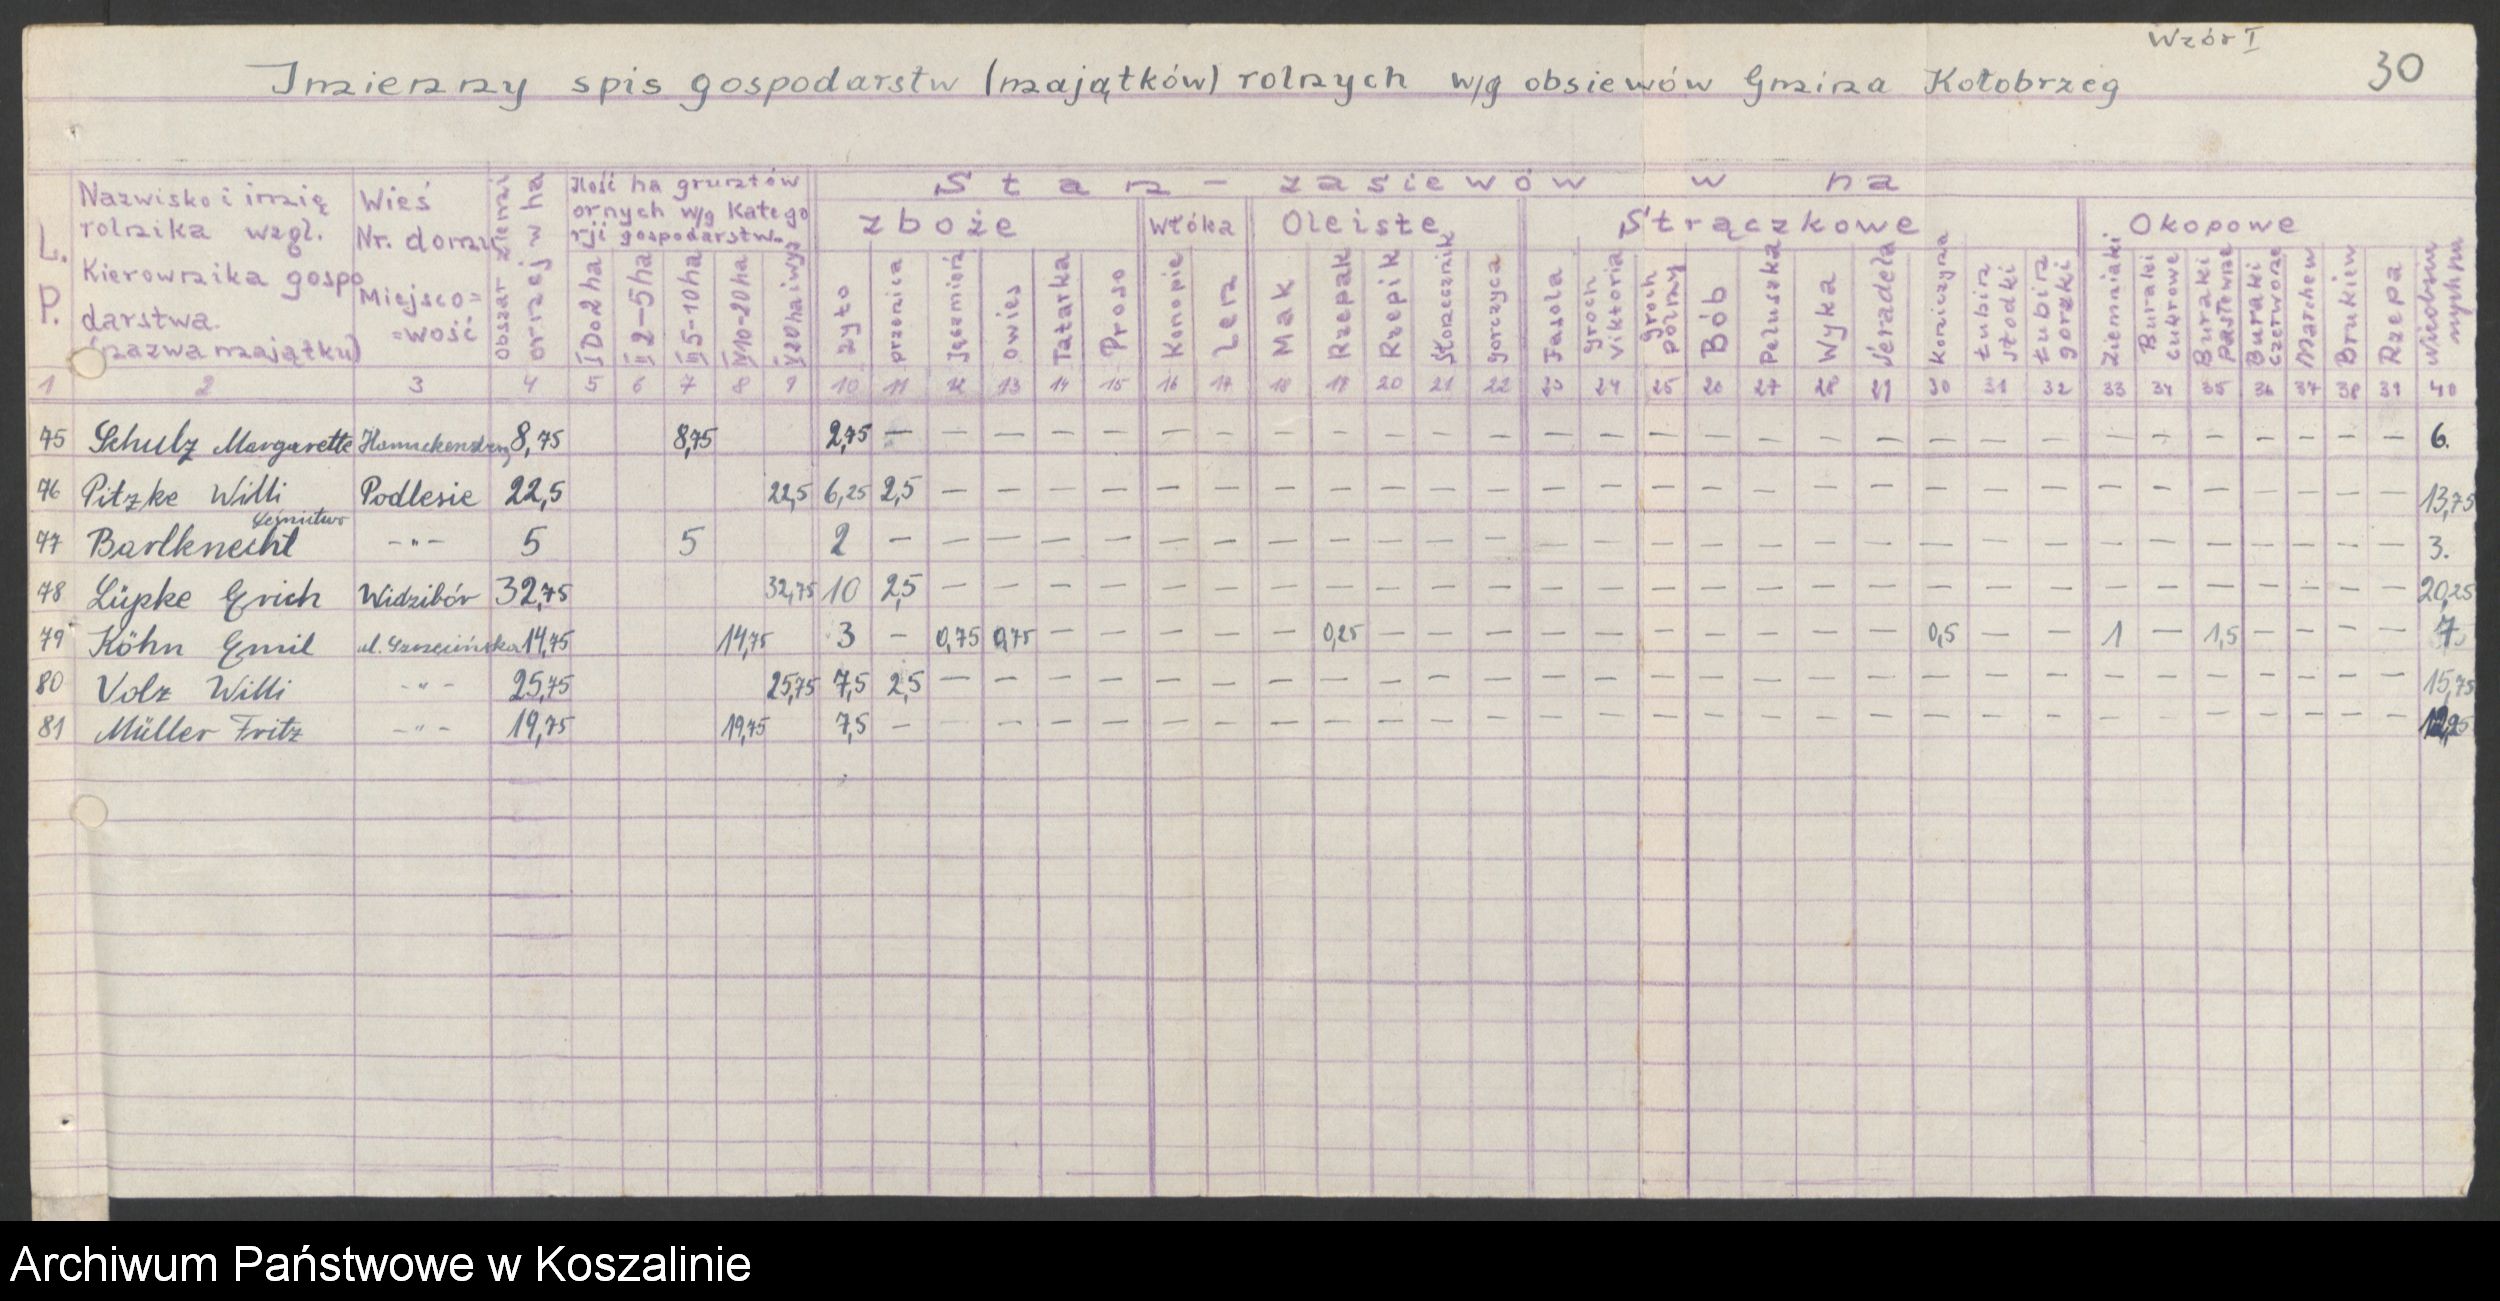 Wzór I
30
Imienny spis gospodarstw (majątków) rolnych w/g obsiewów Gmina Kołobrzeg
L. P.
Nazwisko i imię rolnika wzgl. Kierownika gospodarstwa. (nazwa majątku)
Wieś Nr. domu Miejsco= =wość
Obszar ziemi ornej w ha
Ilość ha gruntów ornych w/g Katego rji gospodarstw.
I Do 2 ha
II 2-5 ha
III 5-10 ha
IV 10-20 ha
V 20 ha i wyż
Stan - zasiewów w ha
zboże
Włókn
Oleiste
Strączkowe
Okopowe
żyto
pszenica
Jęczmień
owies
Tatarka
Proso
Konopie
Len
Mak
Rzepak
Rzepik
Słonecznik
gorczyca
Fasola
groch Viktoria
groch polny
Bób
Peluszka
Wyka
Seradela
Koniczyna
Łubin słodki
Łubin gorzki
Ziemniaki
Buraki cukrowe
Buraki pastewne
Buraki czerwone
Marchew
Brukiew
Rzepa
1 2 3 4 5 6 7 8 9 10 11 12 13 14 15 16 17 18 19 20 21 22 23 24 25 26 27 28 29 30 31 32 33 34 35 36 37 38 39 40
75 Schulz Margarette 8,75 8,75 2,75 — — — — — — — — — — — — — — — — — — — — — — — — — — — — — 6.
76 Pitzke Willi Podlesie 22,5 22,5 6,25 2,5 — — — — — — — — — — — — — — — — — — — — — — — — — — — — 13,75
Leśnictwo
77 Bartknecht -"- 5 5 2 — — — — — — — — — — — — — — — — — — — — — — — — — — — — — 3.
78 Lüpke Erich Widzibór 32,75 32,75 10 2,5 — — — — — — — — — — — — — — — — — — — — — — — — — — — — 20,25
79 Köhn Emil ul. Szczecińska 14,75 14,75 3 — 0,75 0,75 — — — — — 0,25 — — — — — — — — — — 0,5 — — 1 — 1,5 — — — — 7
80 Volz Willi -"- 25,75 25,75 7,5 2,5 — — — — — — — — — — — — — — — — — — — — — — — — — — — — 15,75
81 Müller Fritz -"- 19,75 19,75 7,5 — — — — — — — — — — — — — — — — — — — — — — — — — — — — — 12,25
Archiwum Państwowe w Koszalinie